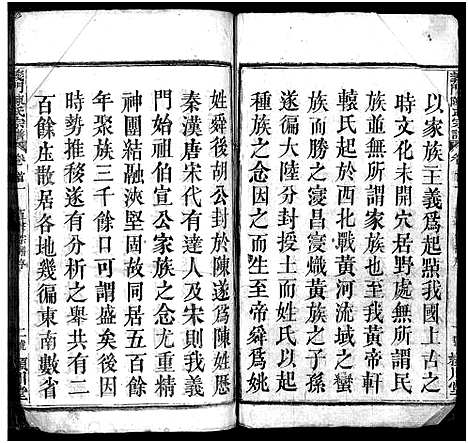 以家族主義爲起點我國上古之
時文化未開穴居野處無所謂民
族亦無所謂家族也一自吾祖軒
轅氏興於西北戰黃河流域之蠻
族而勝之寖昌寖熾黃族之子孫
遂徧大陸分封授土而姓氏以成
種族之念亦因之而生至帝舜爲姚
姓舜後胡公封於陳遂爲陳姓歷
秦漢唐宋代有達人及宋則我義
門始祖伯宣公家族之念一係精
神團結融浹堅固故同居五百餘
年聚族三千餘口可謂盛矣後因
時勢推移遂有分析之舉共有二
百餘庄散居各地幾徧東南數省
義門陳氏宗譜
卷首
潁川堂